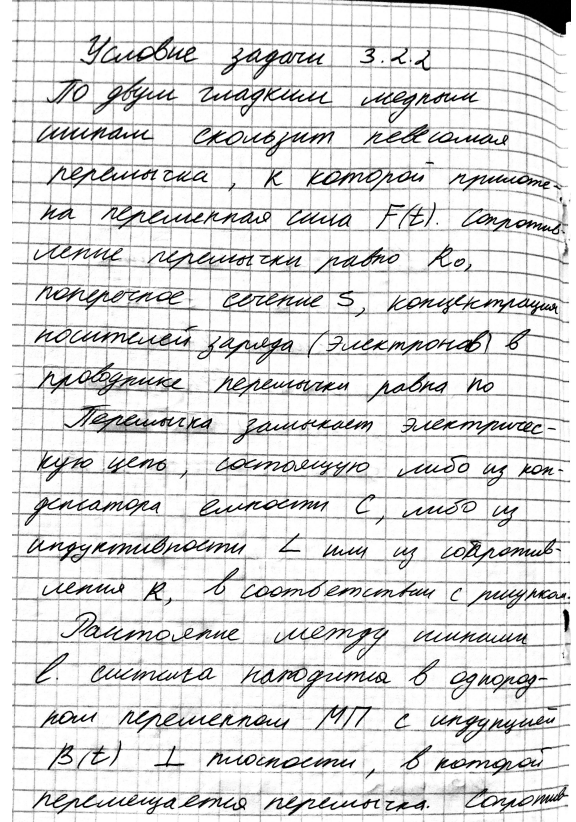 Условие задачи 3.2.2
По двум гладким медным
шинам скользит невесомая
перемычка, к которой приложе-
на переменная сила F(t). Сопротив-
ление перемычки равно R₀,
поперечное сечение S, концентрация
носителей заряда (электронов) в
проводнике перемычки равна n₀
Перемычка замыкает электричес-
кую цепь, состоящую либо из кон-
денсатора емкости C, либо из
индуктивности L или из сопротив-
ления R, в соответствии с рисунком.
Расстояние между шинами
l. система находится в однород-
ном переменном МП с индукцией
B(t) ⊥ плоскости, в которой
перемещается перемычка. Сопротив-